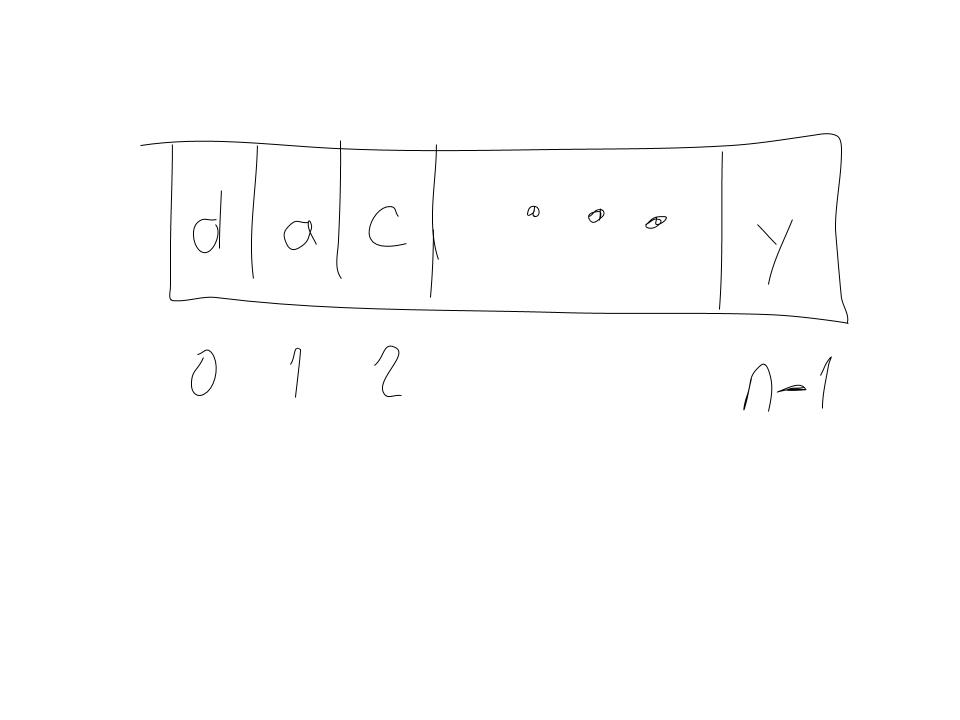 d a c ... y
0 1 2 n-1